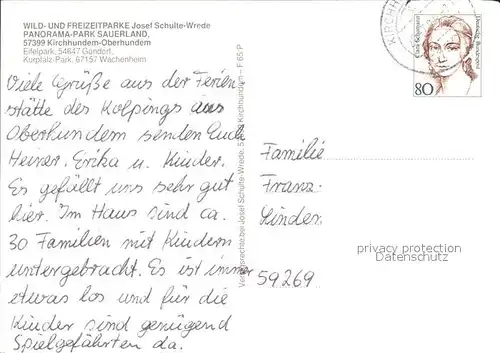 WILD- UND FREIZEITPARKE Josef Schulte-Wrede
PANORAMA-PARK SAUERLAND,
57399 Kirchhundem-Oberhundem
Eifelpark, 54647 Gondorf,
Kurpfalz-Park, 67157 Wachenheim
Viele Grüße aus der Ferien
stätte des Kolpings aus
Oberhundem senden Euch
Heiner, Erika u. Kinder.
Es gefällt uns sehr gut
hier. Im Haus sind ca.
30 Familien mit Kindern
untergebracht. Es ist immer
etwas los und für die
Kinder sind genügend
Spielgefährten da.
Verlagsrechte bei Josef Schulte-Wrede, Kirchhundem – F 65 P
KIRCHH
Clara Schumann
Deutsche Bundespost
80
Familie
Franz
Linder
privacy protection
Datenschutz
59269